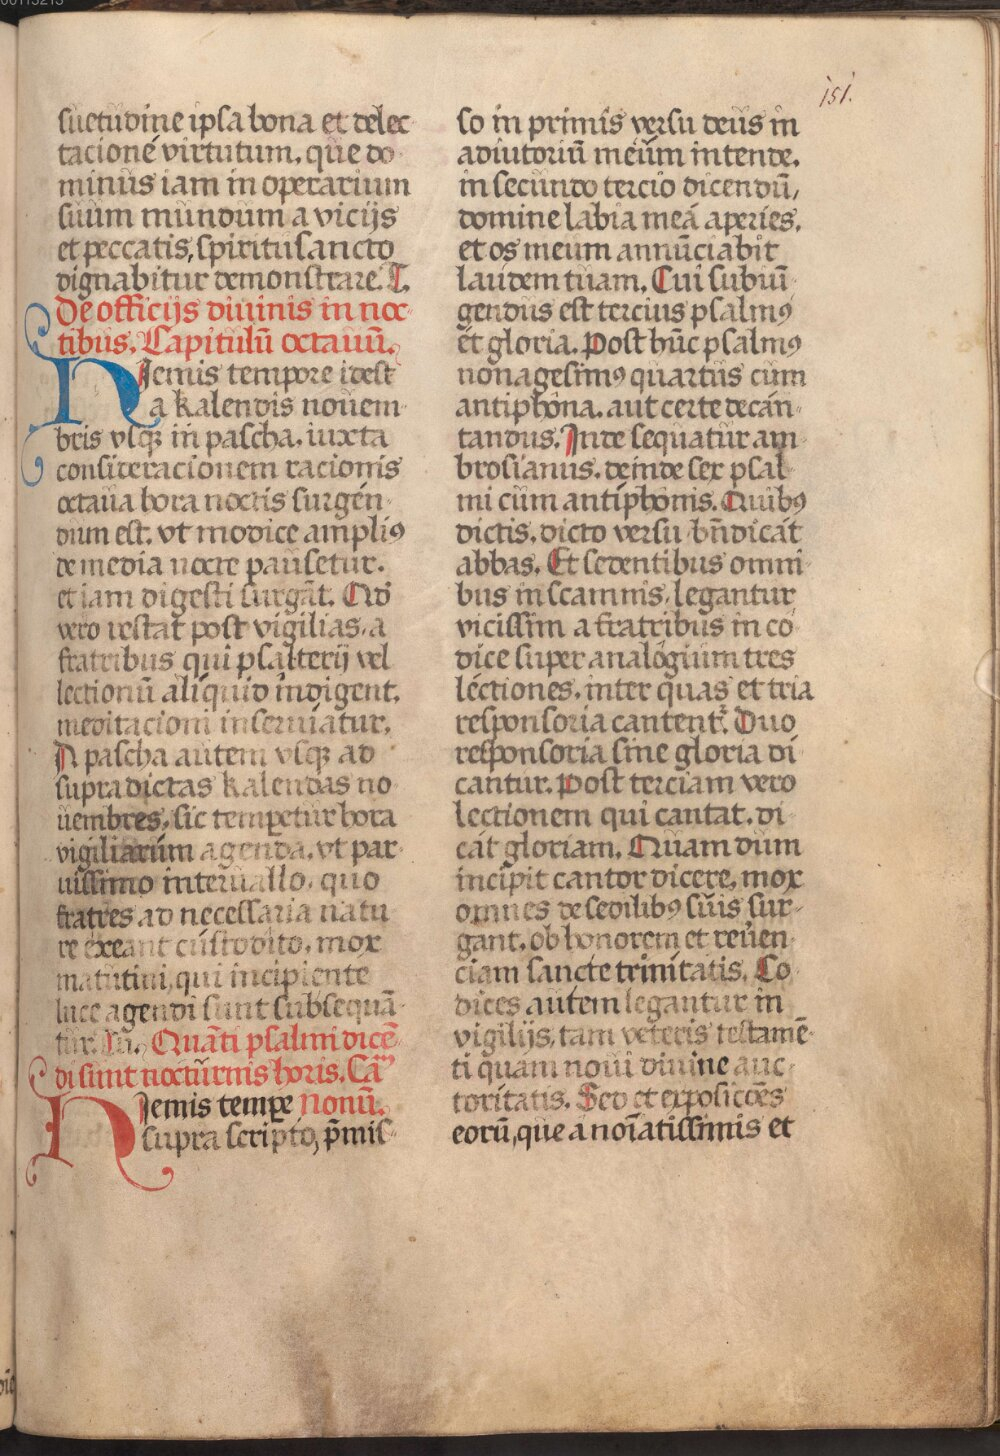 151.
suetudine ipsa bona et delec
tacione virtutum, que do
minus iam in operarium
suum mundum a vicijs
et peccatis, spiritu sancto
dignabitur demonstrare.
De officijs diuinis in noc
tibus. Capitulū octauū.
Hiemis tempore idest
a kalendis nouem
bris vsqꝫ in pascha, iuxta
consideracionem racionis
octaua hora noctis surgen
dum est. vt modice ampliꝰ
de media nocte pausetur.
et iam digesti surgāt. Qđ
vero restat post vigilias, a
fratribus qui psalterij vel
lectionū aliquid indigent,
meditacioni inseruiatur.
A pascha autem vsqꝫ ad
supradictas kalendas no
uembres, sic temperetur hora
vigiliarum agenda, vt par
uissimo interuallo, quo
fratres ad necessaria natu
re exeant custodito, mox
matutini, qui incipiente
luce agendi sunt subsequā
tur. Quāti psalmi dicē
di sunt nocturnis horis. Cam
Hiemis tempe nonū.
supra scripto, p̄mis
so in primis versu deus in
adiutoriū meum intende,
in secundo tercio dicendū,
domine labia mea aperies,
et os meum annūciabit
laudem tuam. Cui subiū
gendus est tercius psalmꝰ
et gloria. Post hūc psalmꝰ
nonagesimꝰ quartus cum
antiphona, aut certe decan
tandus. Inde sequatur am
brosianus. deinde sex psal
mi cum antiphonis. Quibꝰ
dictis, dicto versu, bn̄dicat
abbas. Et sedentibus omni
bus in scamnis, legantur
vicissim a fratribus in co
dice super analogium tres
lectiones, inter quas et tria
responsoria cantent᷑. Duo
responsoria sine gloria di
cantur. Post terciam vero
lectionem qui cantat, di
cat gloriam. Quam dum
incipit cantor dicere, mox
omnes de sedilibꝰ suis sur
gant, ob honorem et reueren
ciam sancte trinitatis. Co
dices autem legantur in
vigilijs, tam veteris testamē
ti quam noui diuine auc
toritatis. Sed et exposicōes
eorū, que a noīatissimis et